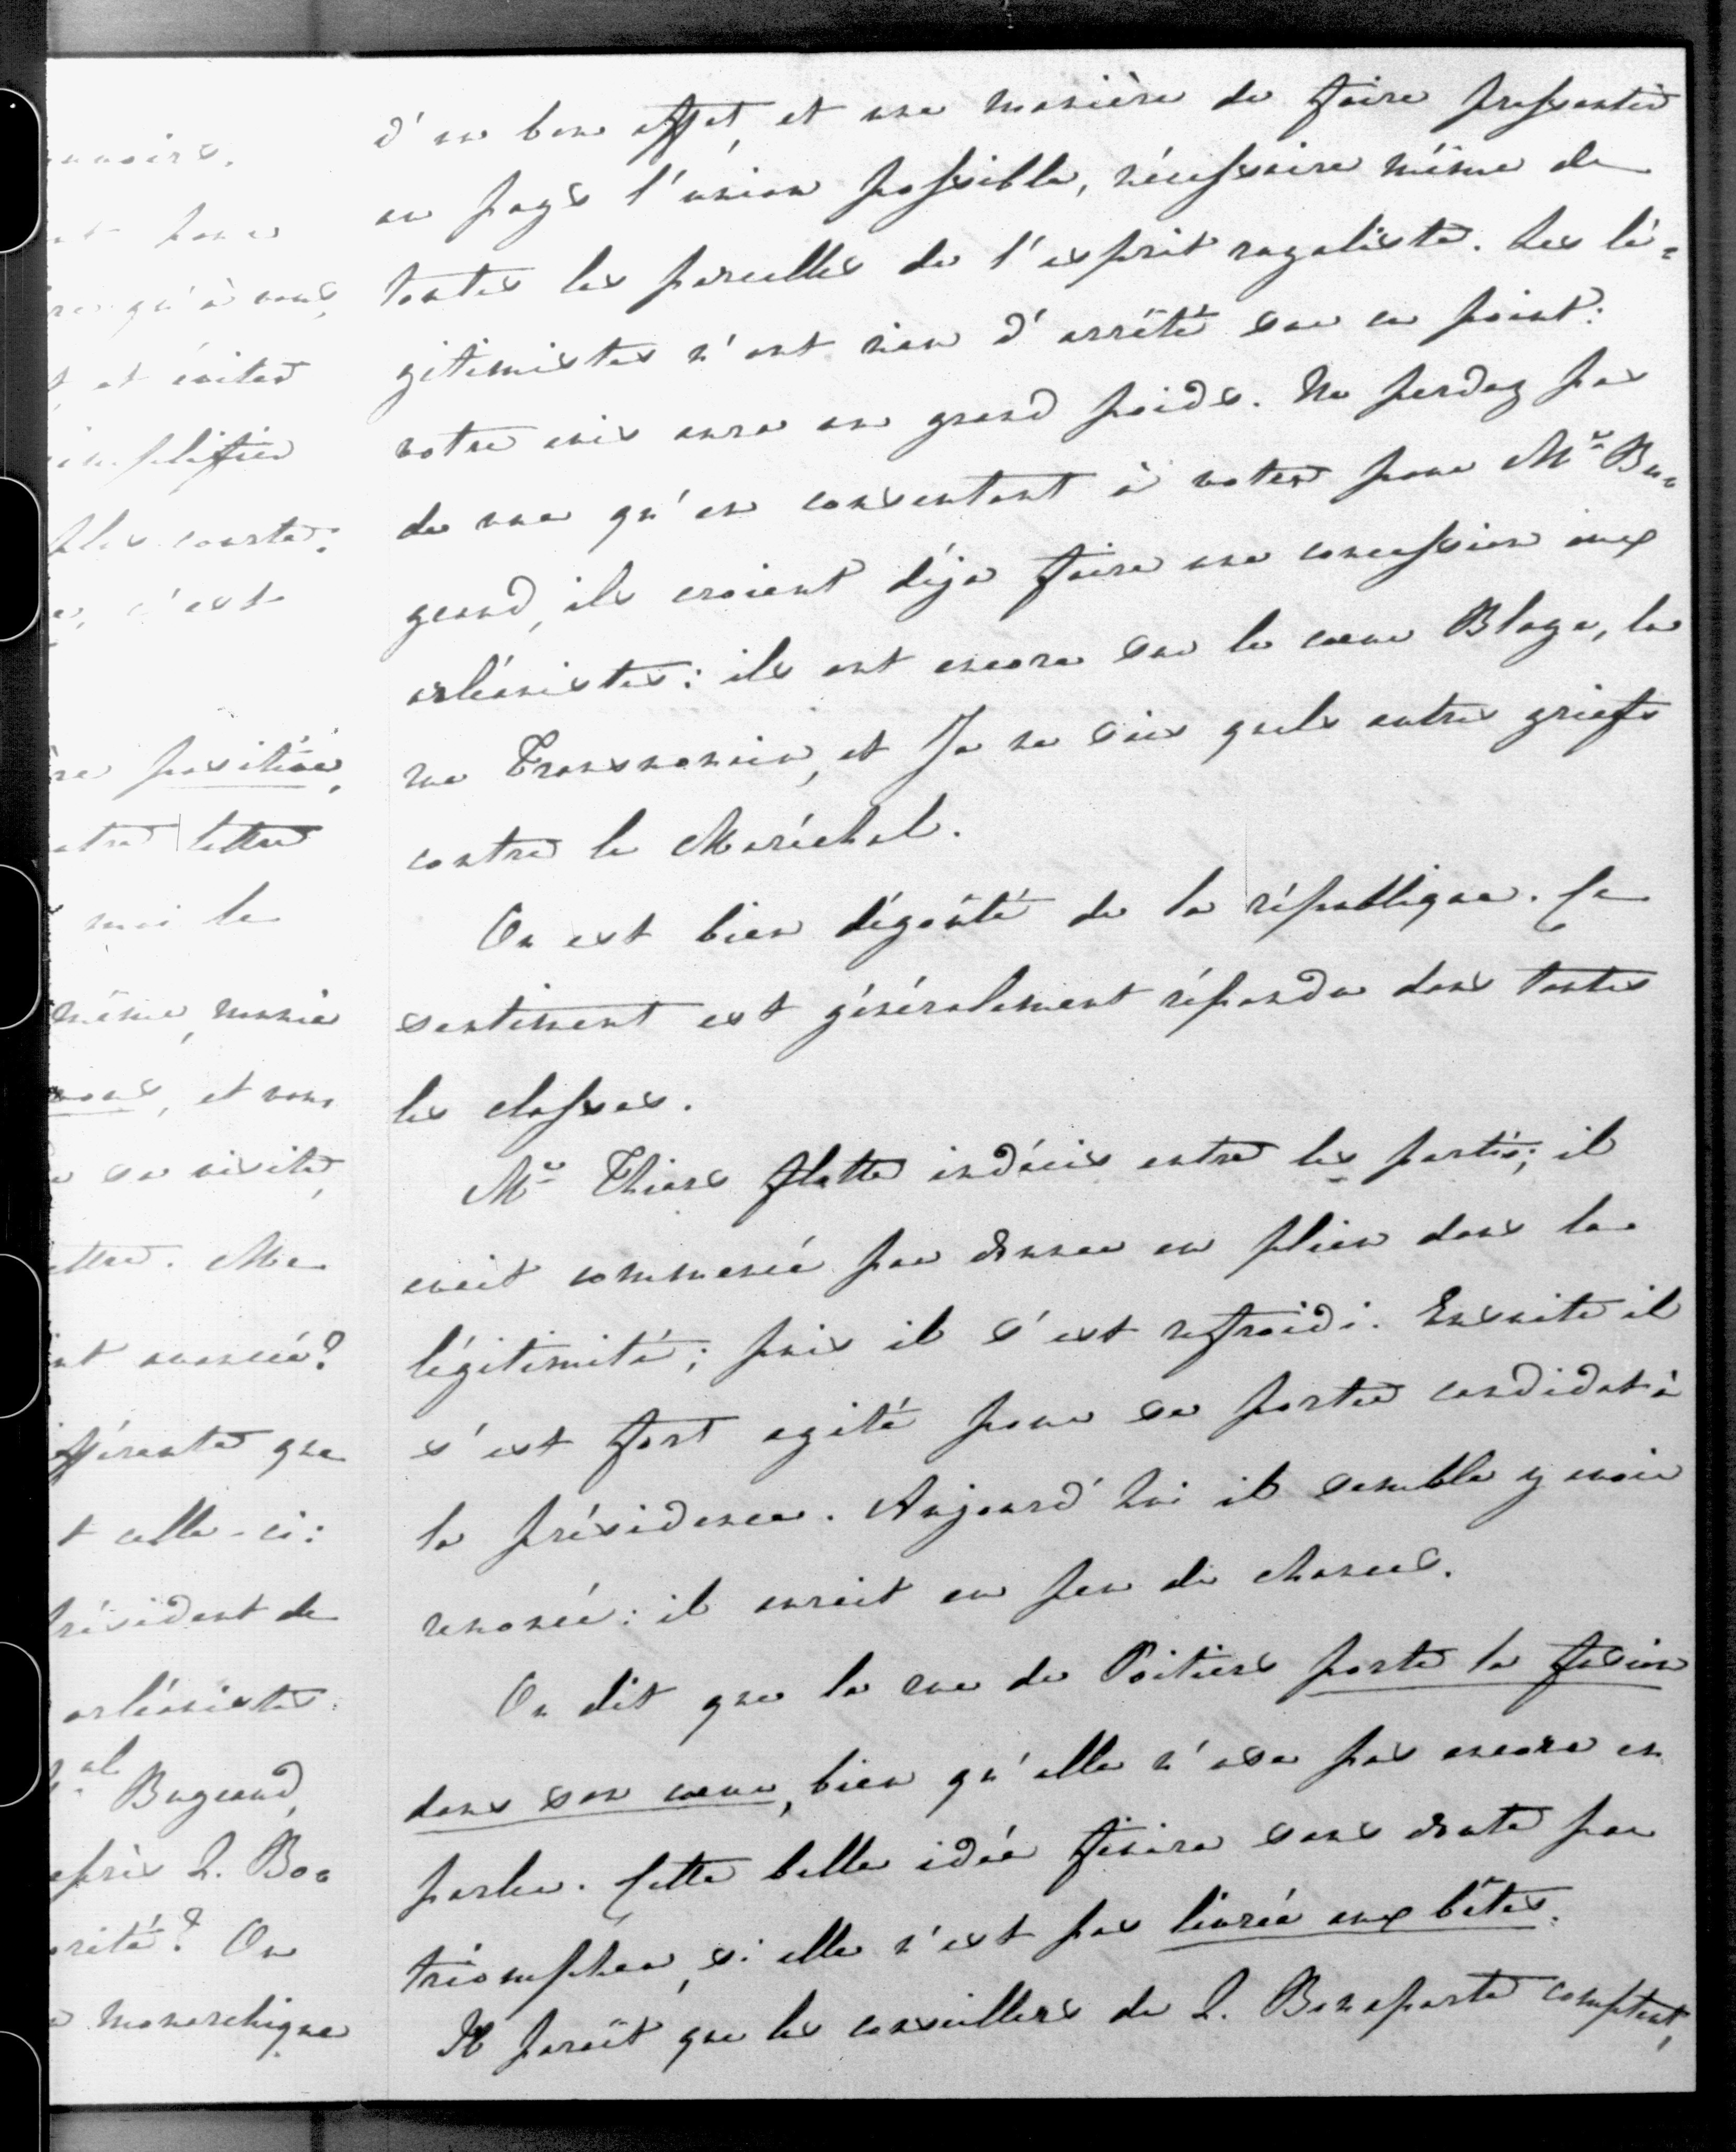 nnoirs.
nt pour
re qu'à vous,
t, et éviter
implifier
plus courte:
e, c'est
re positive,
otre lettre
moi le
même, manie
vous, et vous
e sa visite,
ettre. Me
nt avancée?
ifférente que
t celle-ci:
résident de
orléaniste
al Bugeaud,
après L. Bo=
rité? On
e monarchique
d'un bon effet, et une manière de faire pressentir
au pays l'union possible, nécessaire même de
toutes les parcelles de l'esprit royaliste. Les lé=
gitimistes n'ont rien d'arrêté sur ce point:
votre avis aura un grand poids. Ne perdez pas
de vue qu'en consentant à voter pour Mr Bu=
geaud, ils croient déja faire une concession aux
orléanistes: ils ont encore sur le cœur Blaye, la
rue Transnonain, et Je ne sais quels autres griefs
contre le Maréchal.
On est bien dégoûté de la république. Ce
sentiment est généralement répandu dans toutes
les classes.
Mr Thiers flotte indécis entre les partis; il
avait commencé par donner en plein dans la
légitimité; puis il s'est refroidi. Ensuite il
s'est fort agité pour se porter candidat à
la présidence. Aujourd'hui il semble y avoir
renoncé: il aurait eu peu de chances.
On dit que la rue de Poitiers porte la fusion
dans son cœur, bien qu'elle n'ose pas encore en
parler. Cette belle idée finira sans doute par
triompher, si elle n'est pas livrée aux bêtes.
Il paraît que les conseillers de L. Bonaparte comptent,